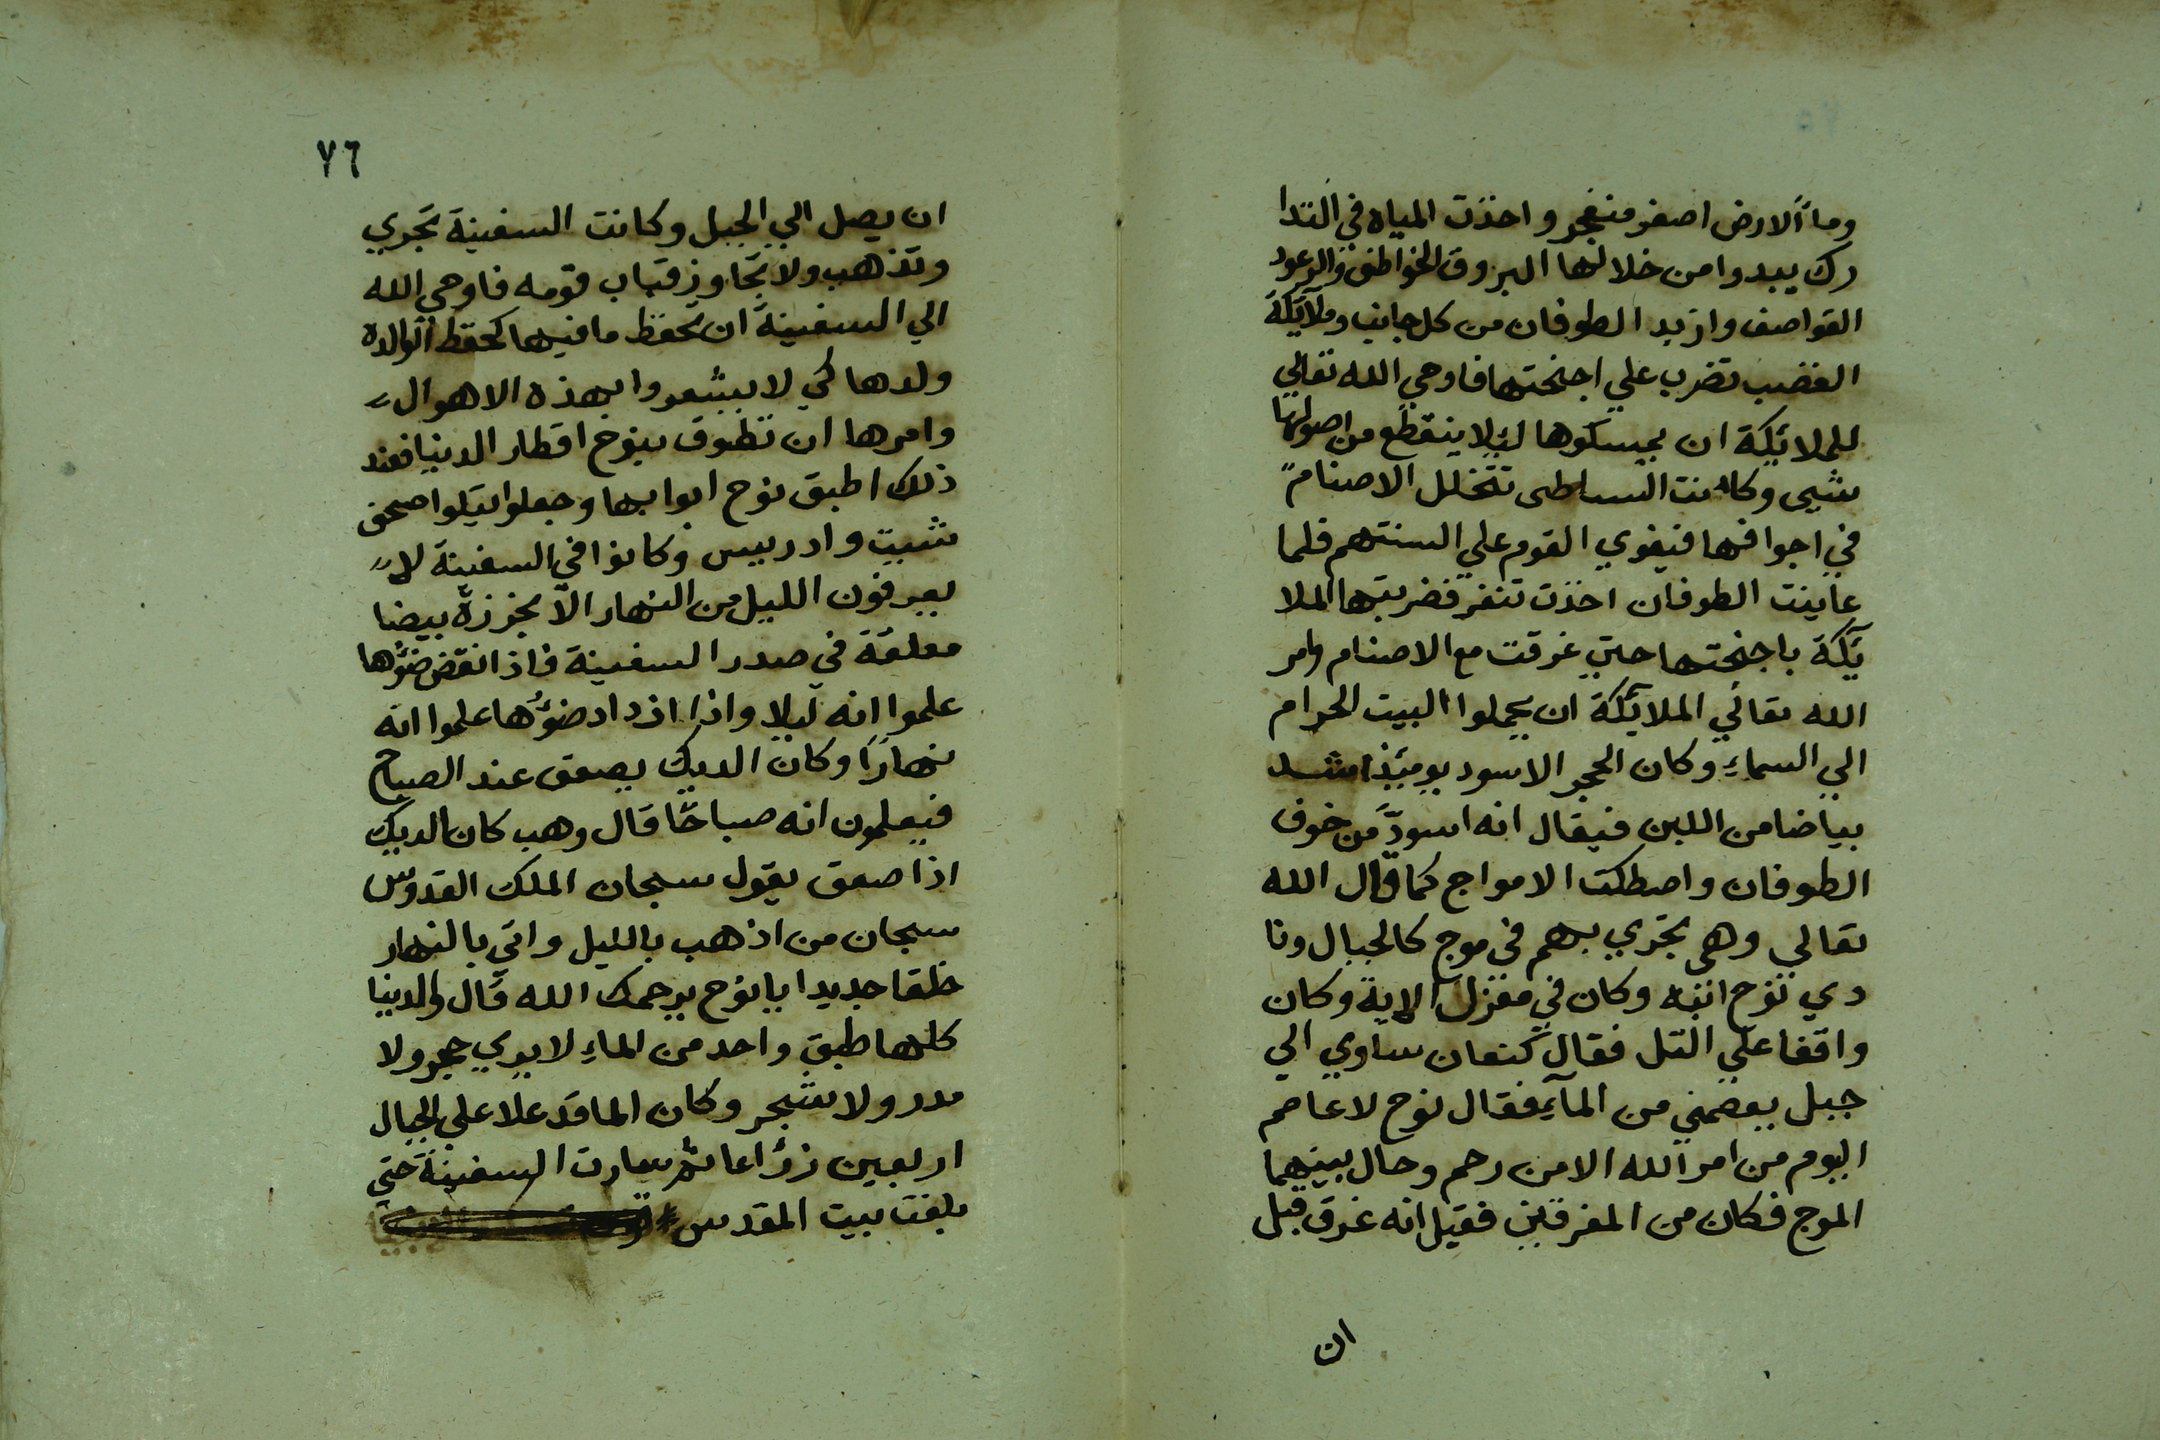 وماۤ الارض اصفر منفجر واخذت المياه في التدا
رك يبدوا من خلالها البروق الخواطف والرعود
القواصف وازبد الطوفان من كل جانب وملآيكة
الغضب تضرب علي اجنحتها فاوحي الله تعالي
للملايكة ان يمسكوها ليلا ينقطع من اصولها
شيى وكانت الشياطين تتخلل الاصنام
في اجوافها فيغوي القوم علي السنتهم فلما
عاينت الطوفان اخذت تنفر فضربتها الملا
يكة باجنحتها حتي غرقت مع الاصنام وامر
الله تعالي الملآيكة ان يحملوا البيت الحرام
الي السماءِ وكان الحجر الاسود يوميذ اشد
بياضا من اللبن فيقال انه اسودّ من خوف
الطوفان واصطكت الامواج كما قال الله
تعالي وهي تجري بهم في موج كالجبال ونا
دي نوح ابنه وكان في معزل الاية وكان
واقفا علي التل فقال كنعان ساوي الي
جبل يعصمني من المآءِ فقال نوح لا عاصم
اليوم من امر الله الا من رحم وحال بينهما
الموج فكان من المغرقين فقيل انه غرق قبل
ان
٧٦
ان يصل الي الجبل وكانت السفينة تجري
وتذهب ولا تجاوز قباب قومه فاوحي الله
الي السفينة ان تحفظ ما فيها كحفظ الوالدة
ولدها كي لا يشعروا بهذه الاهوال
وامرها ان تطوف بنوح اقطار الدنيا فعند
ذلك اطبق نوح ابوابها وجعلوا يتلوا صحف
شيث وادريس وكانوا في السفينة لا
يعرفون الليل من النهار الا بخرزة بيضا
معلقة في صدر السفينة فاذا نقض ضوُها
علموا انه ليلا واذا ازداد ضوُها علموا انه
نهارًا وكان الديك يصعق عند الصباح
فيعلمون انه صباحًا قال وهب كان الديك
اذا صعق يقول سبحان الملك القدوس
سبحان من اذهب بالليل واتي بالنهار
خلقا جديدا يا نوح يرحمك الله قال والدنيا
كلها طبق واحد من الماءِ لا يري حجر ولا
مدر ولا شجر وكان الما قد علا علي الجبال
اربعين ذراعا ثم سارت السفينة حتي
بلغت بيت المقدس